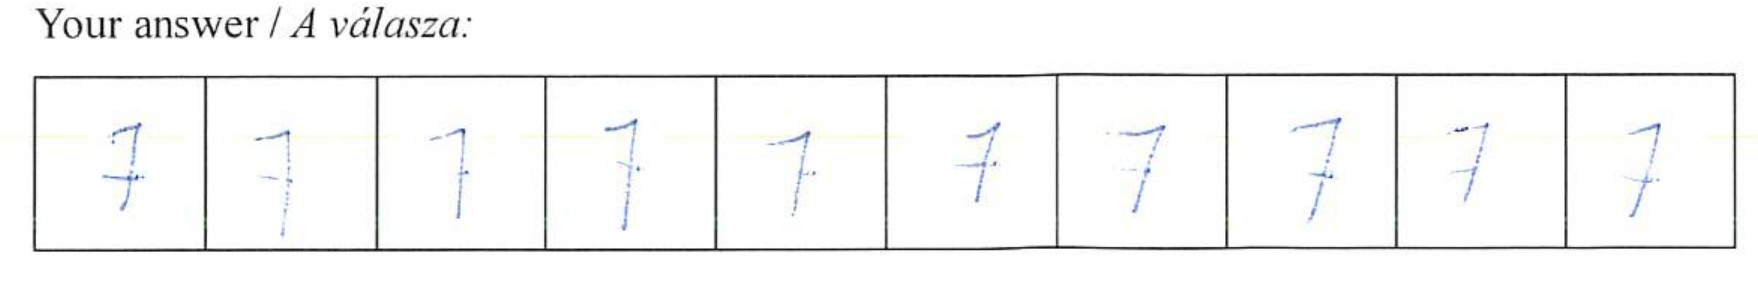 Your answer / A válasza:
7 7 7 7 7 7 7 7 7 7